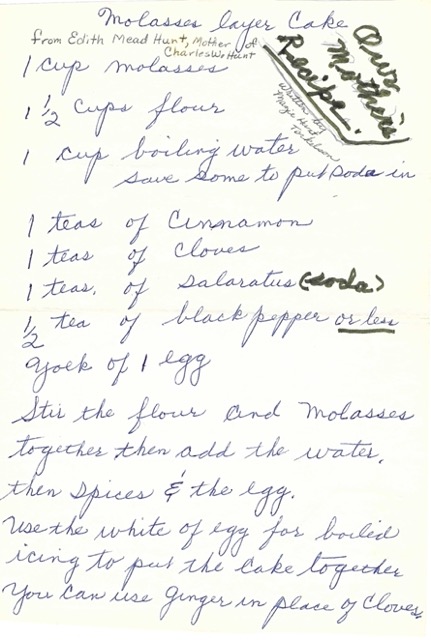 Molasses layer Cake
from Edith Mead Hunt, Mother of
Charles W. Hunt
Our
Mother's
Recipe.
Written by
Marje Hunt
1 cup molasses
1 1/2 cups flour
1 cup boiling water
save some to put soda in
1 teas of Cinnamon
1 teas of Cloves
1 teas. of salaratus (soda)
1/2 tea of black pepper or less
Yoek of 1 egg
Stir the flour and molasses
together then add the water,
then spices & the egg.
Use the white of egg for boiled
icing to put the cake together
You can use ginger in place of Cloves.